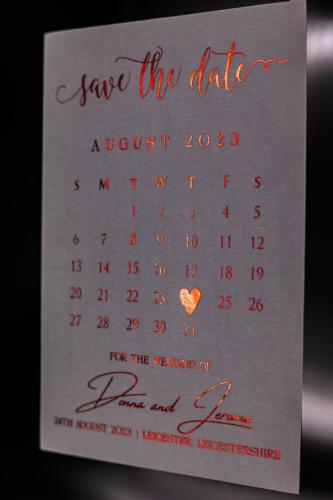 save the date
AUGUST 2023
S M T W T F S
1 2 3 4 5
6 7 8 9 10 11 12
13 14 15 16 17 18 19
20 21 22 23 25 26
27 28 29 30 31
FOR THE WEDDING OF
Donna and Jerome
24TH AUGUST 2023 | LEICESTER, LEICESTERSHIRE